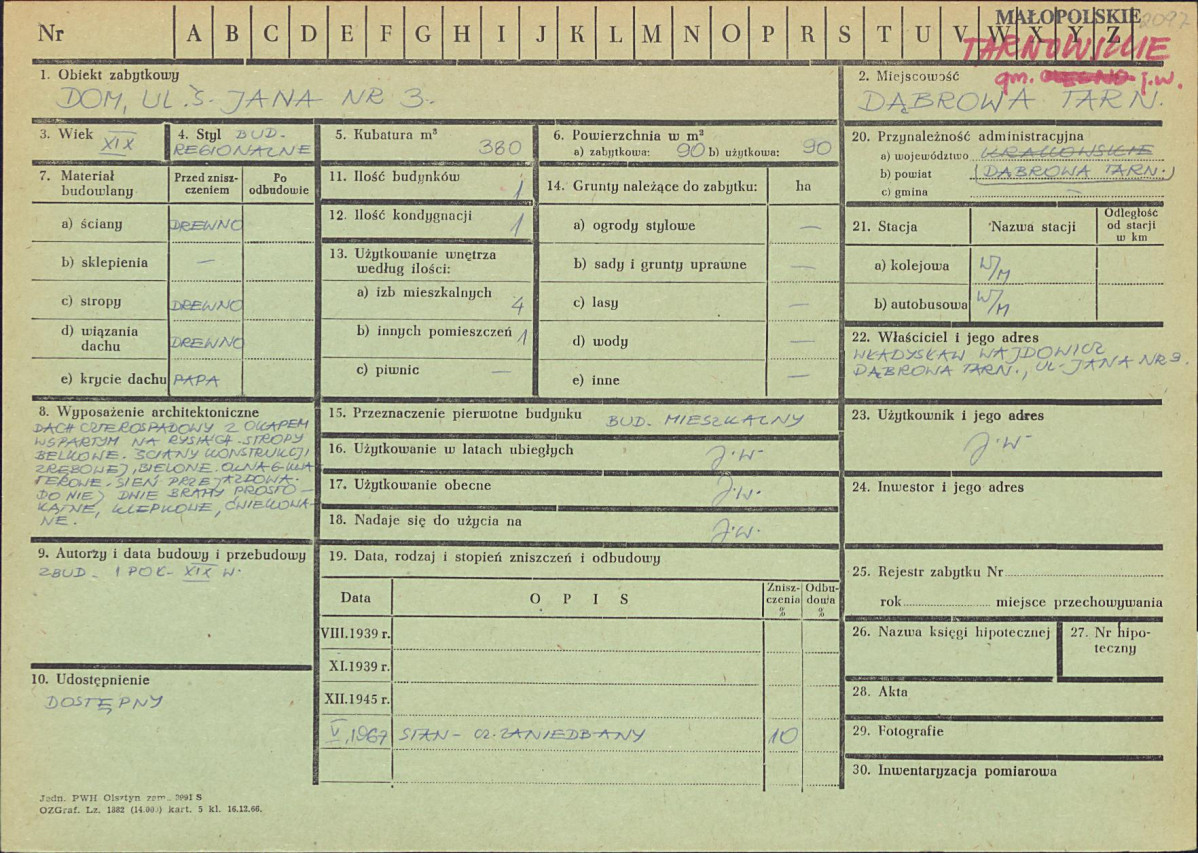 MAŁOPOLSKIE 2097
Nr A B C D E F G H I J K L M N O P R S T U V W X Y Z
TARNOWSKIE
gm. j.w.
1. Obiekt zabytkowy
DOM, UL. Ś. JANA NR 3.
2. Miejscowość
DĄBROWA TARN.
3. Wiek XIX
4. Styl BUD. REGIONALNE
5. Kubatura m³ 380
6. Powierzchnia w m²
a) zabytkowa: 90 b) użytkowa: 90
7. Materiał budowlany
Przed zniszczeniem
Po odbudowie
a) ściany DREWNO
b) sklepienia —
c) stropy DREWNO
d) wiązania dachu DREWNO
e) krycie dachu PAPA
8. Wyposażenie architektoniczne
DACH CZTEROSPADOWY Z OKAPEM
WSPARTYM NA RYSIACH. STROPY
BELKOWE. ŚCIANY KONSTRUKCJI
ZRĘBOWEJ, BIELONE. OKNA 6 KWA
TEROWE. SIEŃ PRZEJAZDOWA.
DO NIEJ DWIE BRAMY PROSTO-
KĄTNE, KLEPKOWE, ĆWIEKOWA-
NE.
9. Autorzy i data budowy i przebudowy
ZBUD. I POŁ. XIX W.
10. Udostępnienie
DOSTĘPNY
11. Ilość budynków 1
12. Ilość kondygnacji 1
13. Użytkowanie wnętrza
według ilości:
a) izb mieszkalnych 4
b) innych pomieszczeń 1
c) piwnic —
14. Grunty należące do zabytku: ha
a) ogrody stylowe —
b) sady i grunty uprawne —
c) lasy —
d) wody —
e) inne —
15. Przeznaczenie pierwotne budynku BUD. MIESZKALNY
16. Użytkowanie w latach ubiegłych J.W.
17. Użytkowanie obecne J.W.
18. Nadaje się do użycia na J.W.
19. Data, rodzaj i stopień zniszczeń i odbudowy
Data OPIS Zniszczenia % Odbudowa %
VIII.1939 r.
XI.1939 r.
XII.1945 r.
V.1967 STAN - CZ. ZANIEDBANY 10
20. Przynależność administracyjna
a) województwo KRAKOWSKIE
b) powiat (DĄBROWA TARN.)
c) gmina —
21. Stacja Nazwa stacji Odległość od stacji w km
a) kolejowa W/M
b) autobusowa W/M
22. Właściciel i jego adres
WŁADYSŁAW WAJDOWICZ
DĄBROWA TARN., UL. JANA NR 3.
23. Użytkownik i jego adres
J.W.
24. Inwestor i jego adres
25. Rejestr zabytku Nr
rok miejsce przechowywania
26. Nazwa księgi hipotecznej
27. Nr hipoteczny
28. Akta
29. Fotografie
30. Inwentaryzacja pomiarowa
Jedn. PWH Olsztyn zam. 3091 S
OZGraf. Lz. 1882 (14.000) kart. 5 kl. 16.12.66.